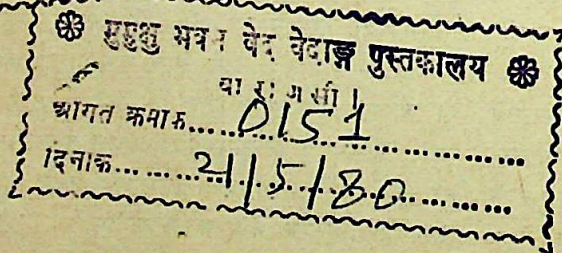 मुमुक्षु भवन वेद वेदाङ्ग पुस्तकालय
वाराणसी।
आगत क्रमाक......0151......
दिनाक......21/5/80......